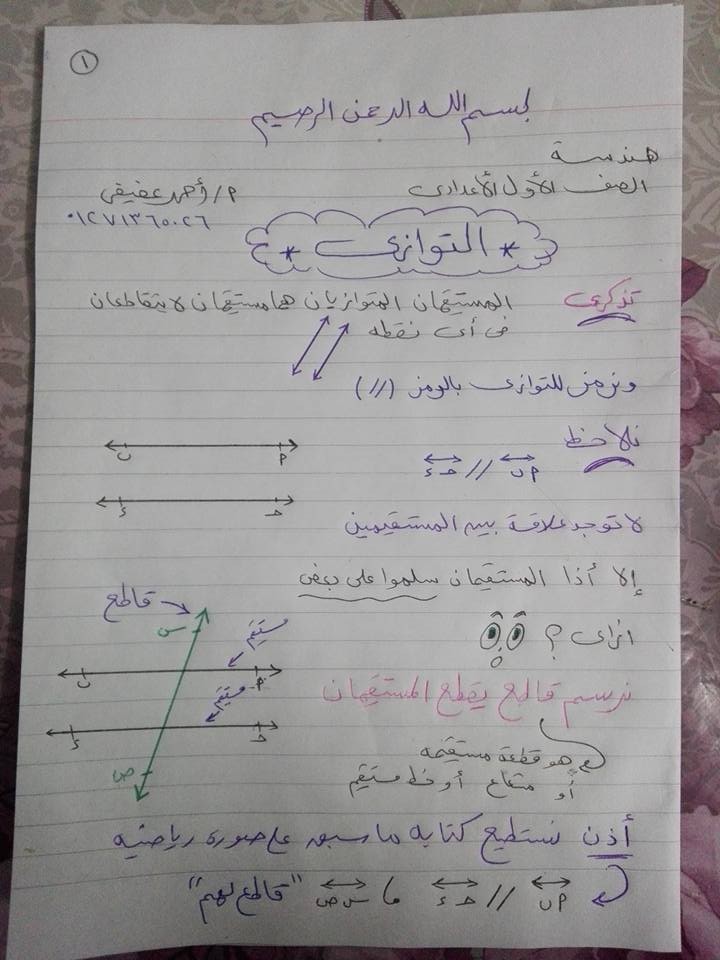 ١
بسم الله الرحمن الرحيم
هندسة
الصف الأول الأعدادى
م/ أحمد عفيفى
٠١٢٧١٣٦٥٠٢٦
* التوازى *
تذكرى المستقيمان المتوازيان هما مستقيمان لا يتقاطعان
فى أى نقطه
ونرمز للتوازى بالرمز (//)
نلاحظ
م ب // حـ ء
م ب
حـ ء
لا توجد علاقة بين المستقيمين
إلا أذا المستقيمان سلموا على بعض
ازاى ؟
قاطع
س
مستقيم
م ب
مستقيم
حـ ء
ص
نرسم قاطع يقطع المستقيمان
هو قطعة مستقيمه
أو شعاع أو خط مستقيم
أذن نستطيع كتابه ما سبق على صورة رياضيه
م ب // حـ ء ، س ص "قاطع لهم"